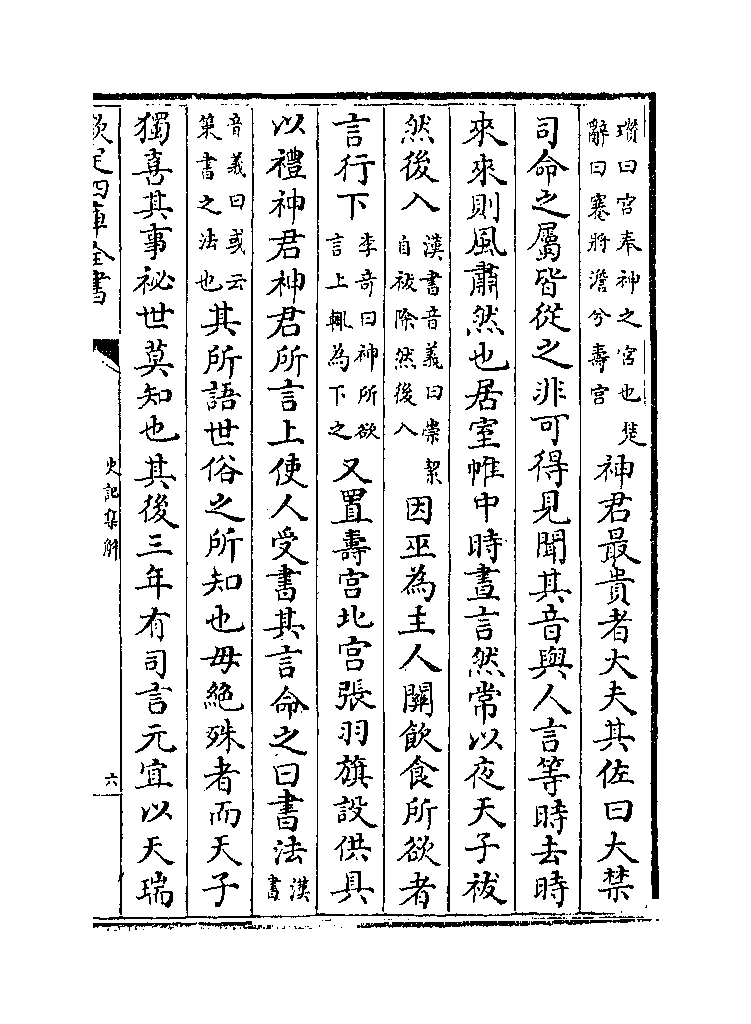 瓚曰宫奉神之宫也楚辭曰蹇將澹兮壽宫神君最貴者大夫其佐曰大禁
司命之屬皆從之非可得見聞其音與人言等時去時
來來則風肅然也居室帷中時晝言然常以夜天子祓
然後入漢書音義曰崇絜自祓除然後入因巫為主人關飲食所欲者
言行下李竒曰神所欲言上輒為下之又置壽宫北宫張羽旗設供具
以禮神君神君所言上使人受書其言命之曰書法漢書
音義曰或云策書之法也其所語世俗之所知也毋絶殊者而天子
獨喜其事祕世莫知也其後三年有司言元宜以天瑞
欽定四庫全書 史記集解 六